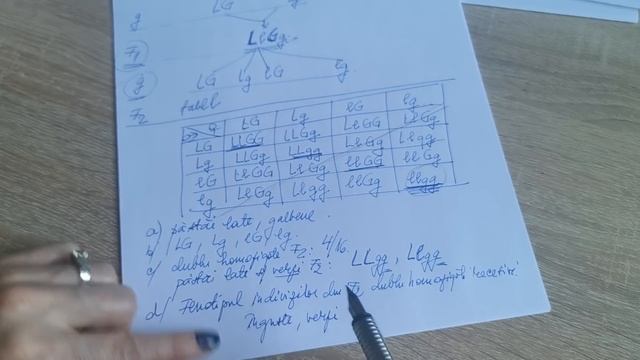 g
F1 LlGg
g LG lg lG lg
F2 tabel
LG Lg lG lg
LG LLGG LLGg LlGG LlGg
Lg LLGg LLgg LlGg Llgg
lG LlGG LlGg llGG llGg
lg LlGg Llgg llGg llgg
a) păstăi late, galbene.
b) LG, Lg, lG, lg.
c) dublu homozigote F2: 4/16.
păstăi late și verzi F2: LLgg, Llgg
d) Fenotipul indivizilor din F2 dublu homozigoți recesivi
înguste, verzi